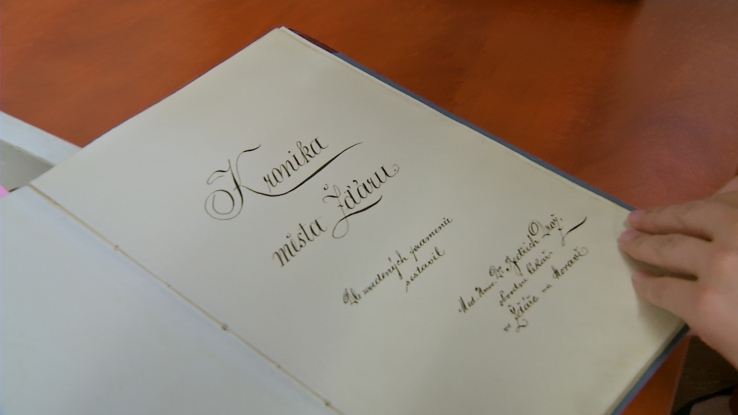 Kronika
města Žďáru
Ze uvedených pramenů
sestavil
Med. Univ. Dr. Bedřich Drož.
obvodní lékař
ve Žďáře na Moravě